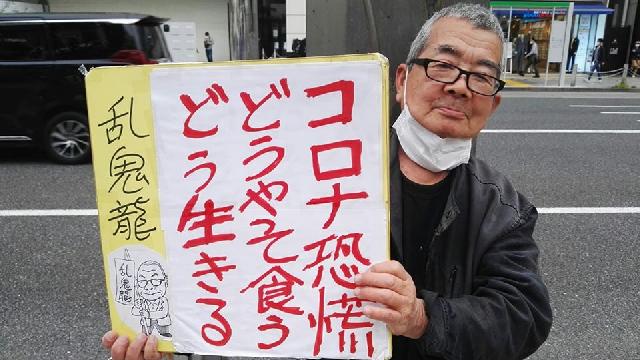 コロナ恐慌
どうやって食う
どう生きる
乱鬼龍
乱鬼龍